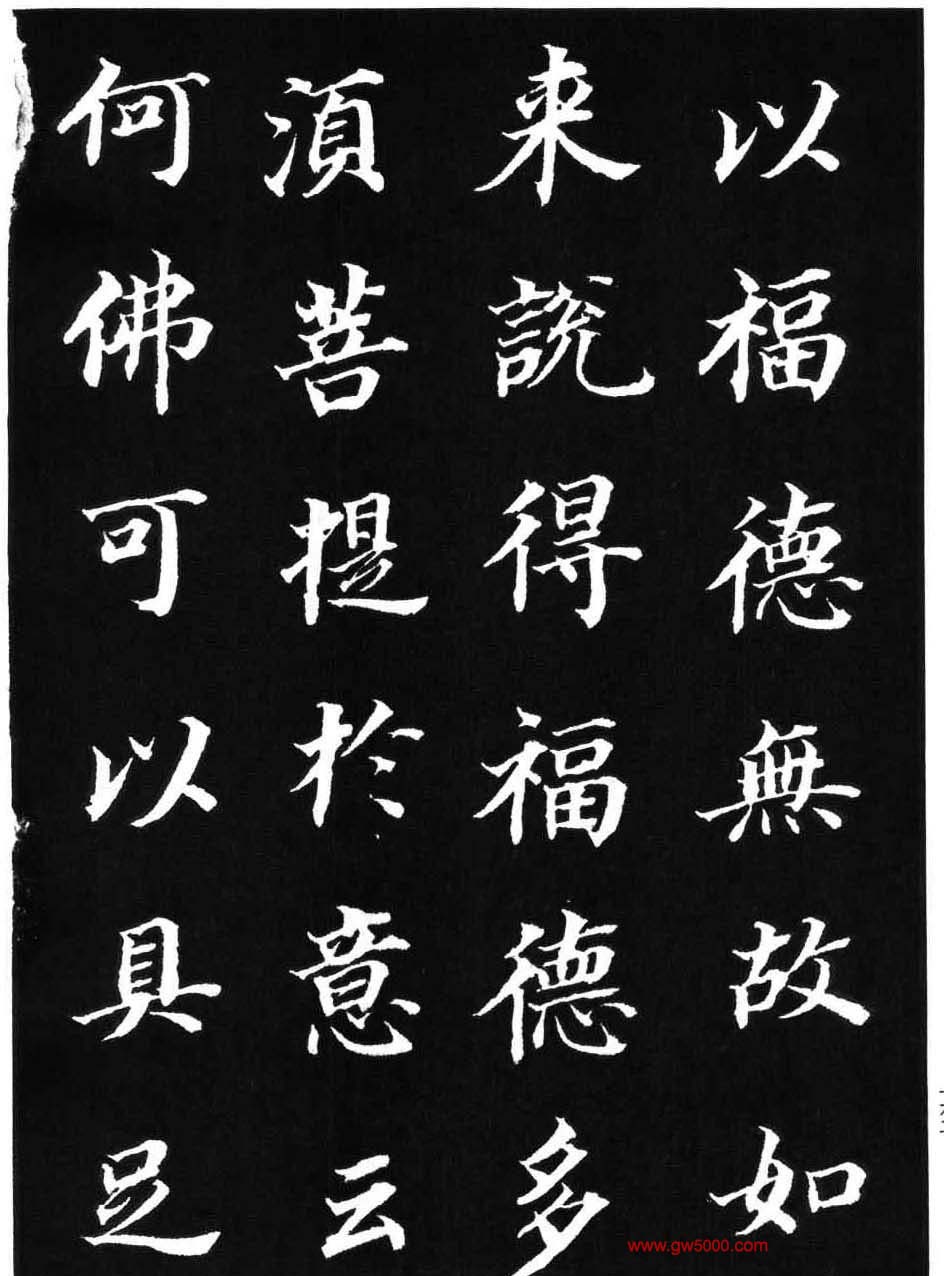 以福德無故如
来說得福德多
湏菩提於意云
何佛可以具足
www.gw5000.com